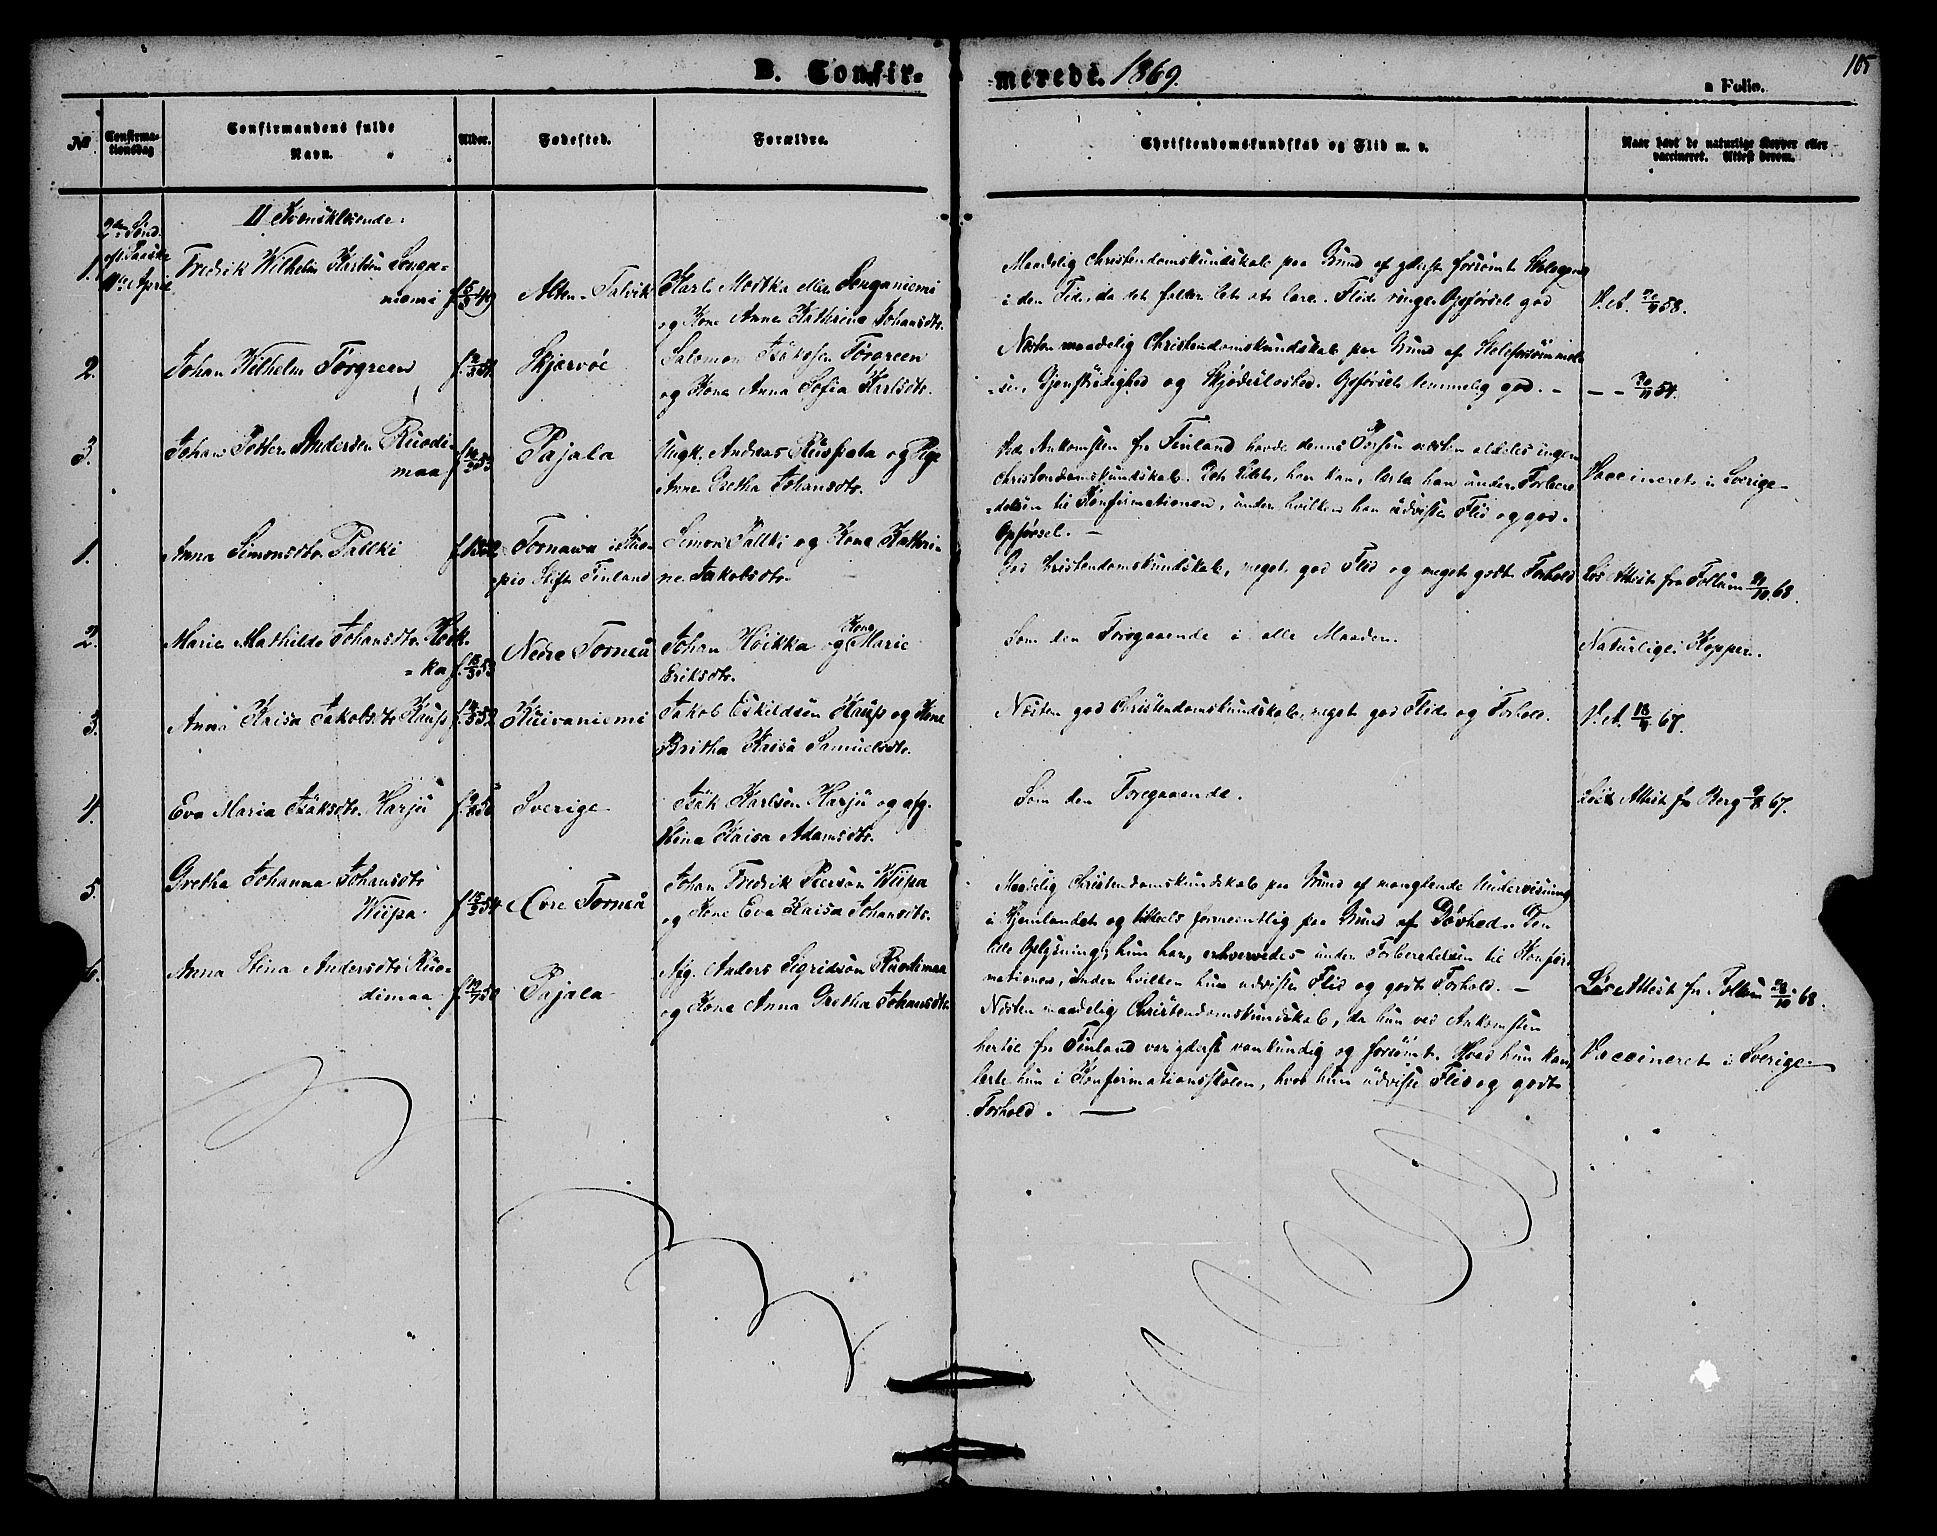 B. Confir-
merede. 1869.
105
a Folio.
No
Confirma-
tionsdag
Confirmandens fulde
Navn.
Alder.
Fødested.
Forældre.
Christendomskundskab og Flid m. v.
Naar havt de naturlige Kopper eller
vaccineret. Attest derom.
II Kvensktalende:
2den Sønd.
eft Paaske
11te April
1. Fredrik Wilhelm Karlsen Songa-
niemi
Alten-Talvik
Karl Mortka eller Songaniemi
og Kone Anna Kathrina Johansdtr.
Maadelig Christendomskundskab paa Grund af yderst forsømt Skolegang
i den Tid, da det falder let at lære. Flid ringe. Opførsel god
V.A. 58.
2. Johan Wilhelm Törgreen
Skjervöe
Salomon Isaksen Törgreen
og Kone Anna Sofia Karlsdtr.
Næsten maadelig Christendomskundskab paa Grund af Skoleforsømmel-
sen, Gjenstridighed og Skjødesløshed. Opførsel temmelig god. -
- - 20/11 54.
3. Johan Petter Andersen Ruodi-
maa
Pajala
Ungk. Andreas og Pige
Anna Gretha Johansdtr.
Ved Ankomsten fra Finland havde denne Person næsten aldeles ingen
Christendomskundskab. Det Lidet, han kan, lærte han under Forbere-
delsen til Konfirmationen, under hvilken han udviste Flid og god
Opførsel. -
Vaccineret i Sverige
1. Anna Simonsdtr. Pallki
Tornawa i Kuo-
pio Stift Finland
Simon Pallki og Kone Kathri-
ne Jakobsdtr.
God Christendomskundskab, meget god Flid og meget godt Forhold
Løs Attest fra 29/10 68.
2. Maria Mathilde Johansdtr. Høik-
ka
Nedre Torneå
Johan Høikka og Kone Marie
Eriksdtr.
Som den Foregaaende i alle Maader.
Naturlige Kopper.
3. Anna Kaisa Jakobsdtr. Kaup
Kuivaniemi
Jakob Eskildsen Kaup og Kone
Britha Kaisa Samuelsdtr.
Næsten god Christendomskundskab, meget god Flid og Forhold.
V.A. 18/9 67.
4. Eva Maria Isaksdtr. Harju
Sverige
Isak Karlsen Harju og afg.
Stina Kaisa Adamsdtr.
Som den Foregaaende.
Løs Attest fra Berg 9/8 67.
5. Gretha Johanna Johansdtr.
Wiipa
Øvre Torneå
Johan Fredrik Peersøn Wiipa
og Kone Eva Kaisa Johansdtr.
Maadelig Christendomskundskab paa Grund af manglende Undervisning
i Hjemlandet og tildels formeentlig paa Grund af Døvhed. Den
lille Oplysning, hun har, erhvervedes under Forberedelsen til Konfir-
mationen, under hvilken hun udviste Flid og godt Forhold. -
Løs Attest fra 28/10 68.
6. Anna Stina Andersdtr. Ruo-
dimaa
Pajala
Afg. Anders Sigridsøn Ruodimaa
og Kone Anna Gretha Johansdtr.
Næsten maadelig Christendomskundskab, da hun ved Ankomsten
hertil fra Finland var yderst vankundig og forsømt. Hvad hun kan,
lærte hun i Konfirmationsskolen, hvor hun udviste Flid og godt
Forhold. -
Vaccineret i Sverige